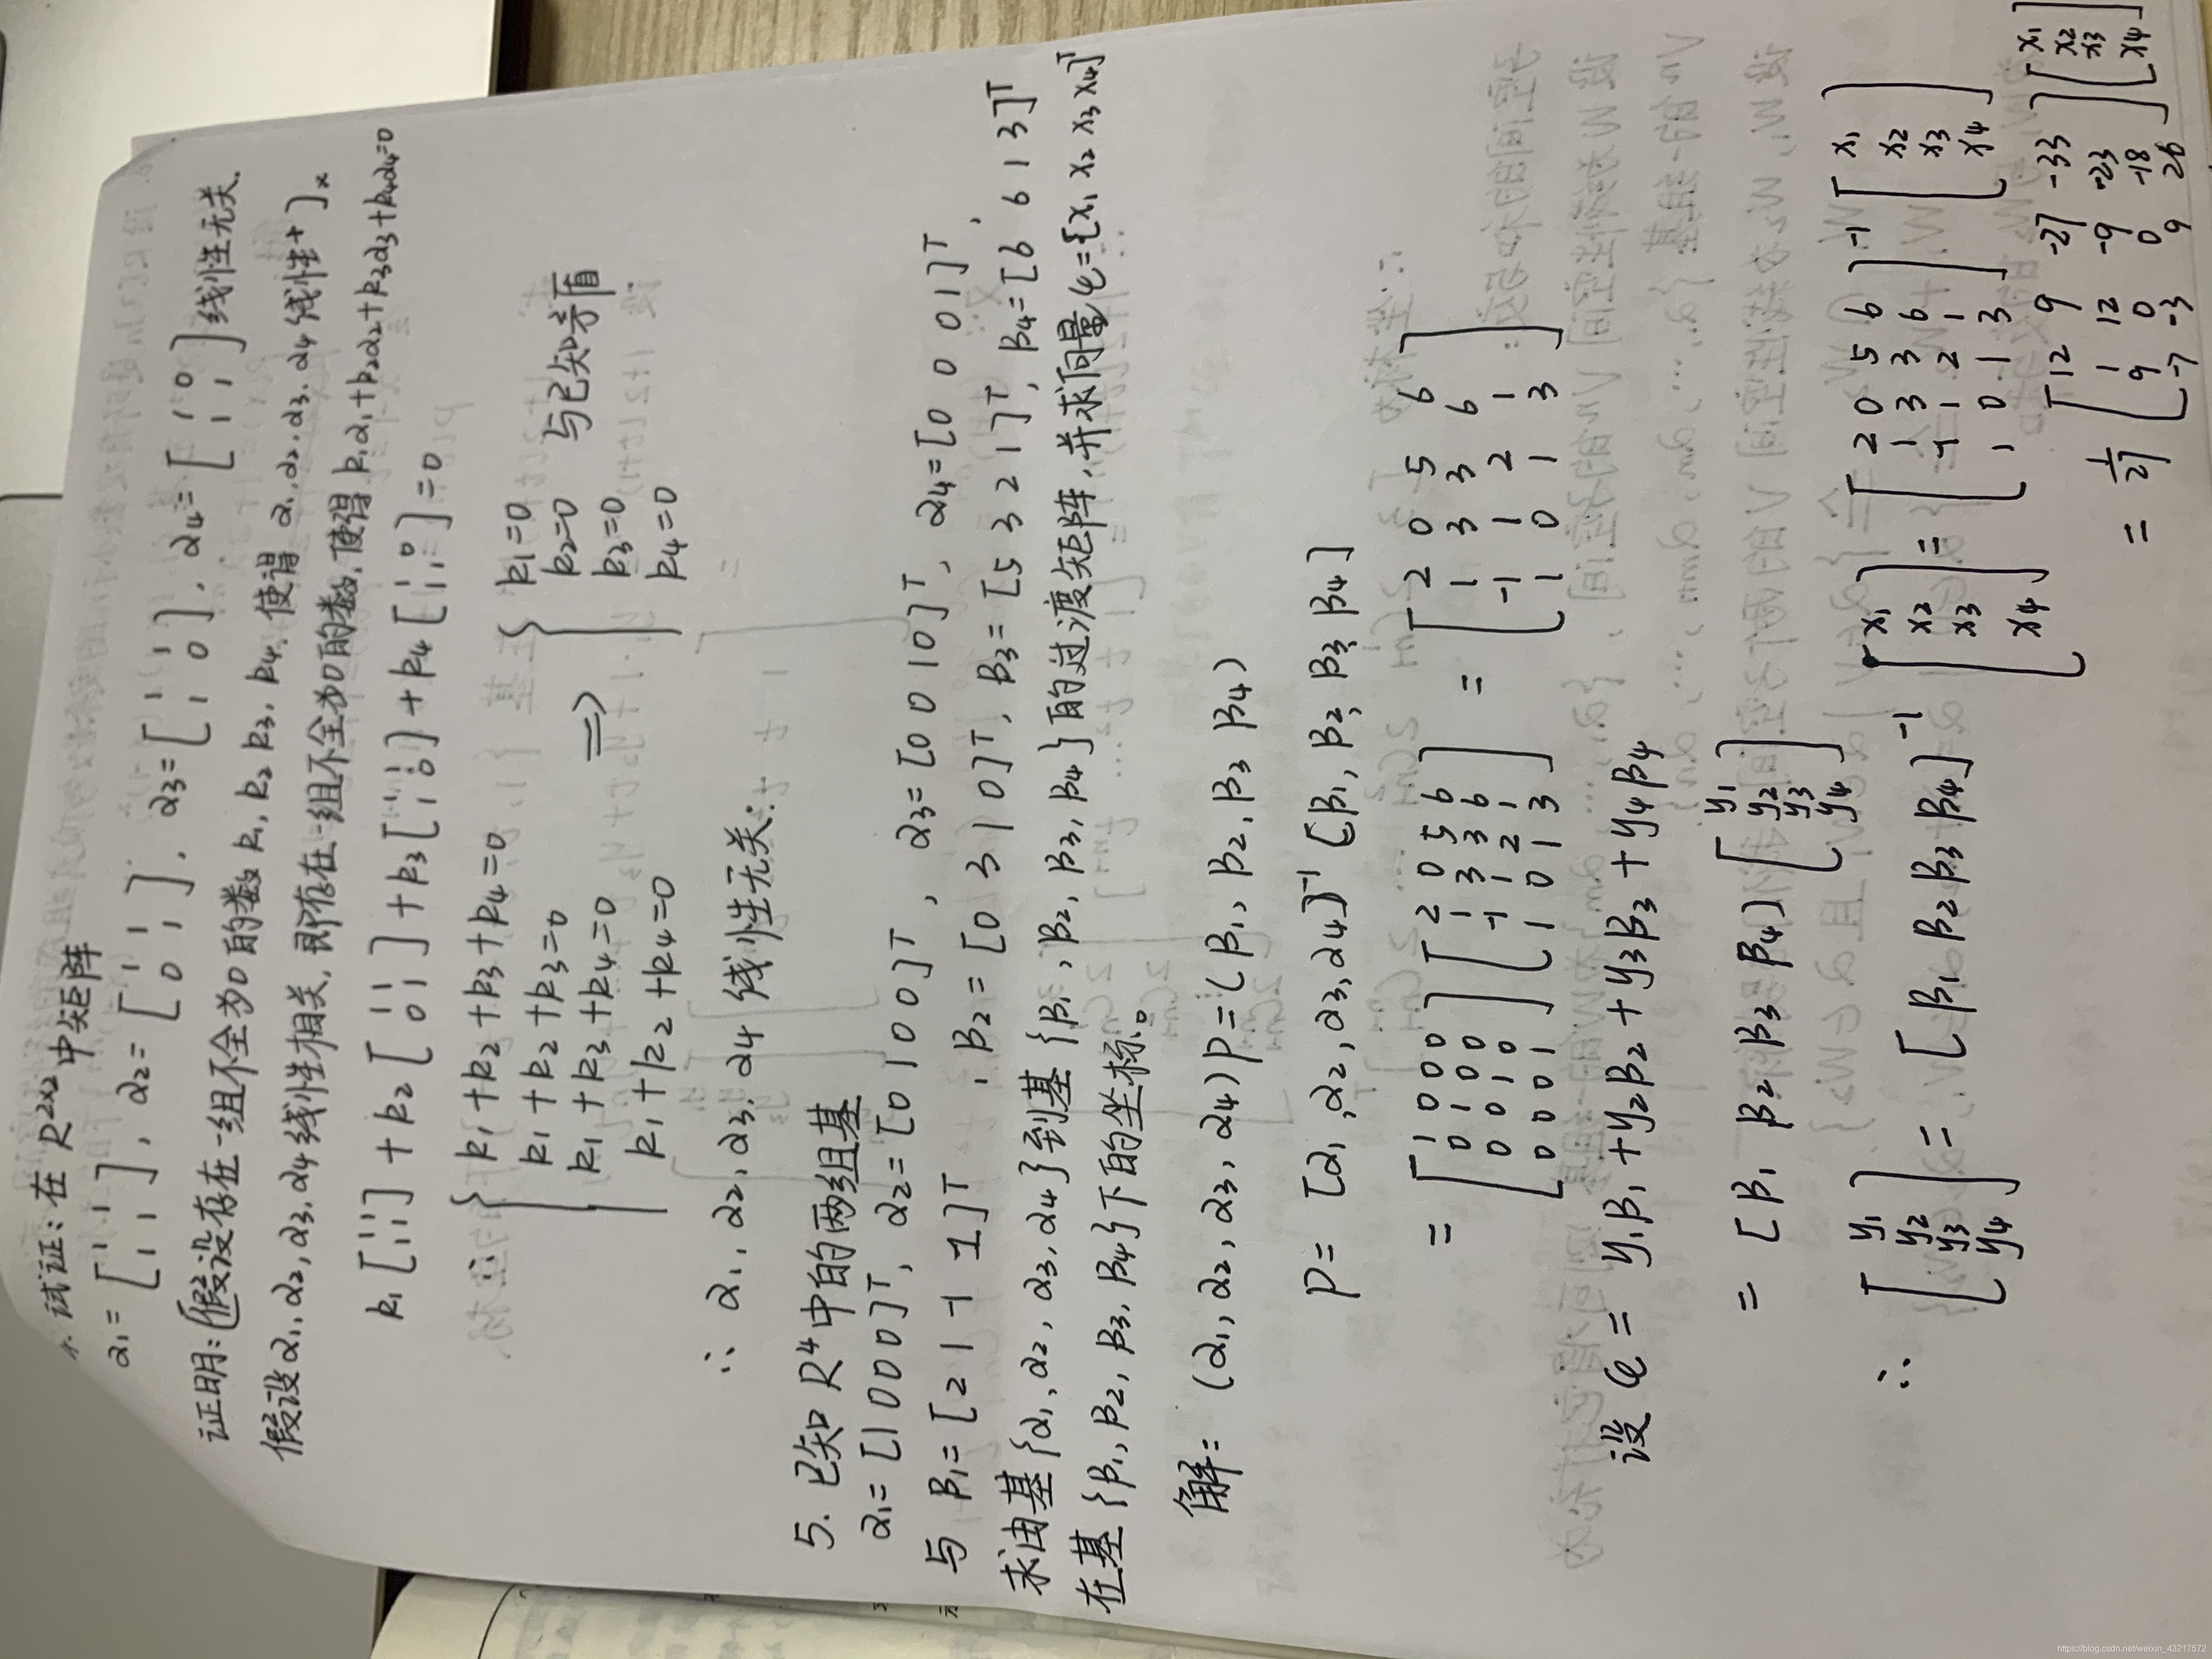 4. 试证：在 R^{2×2} 中矩阵
α₁=[1 1; 1 1], α₂=[1 1; 0 1], α₃=[1 1; 1 0], α₄=[1 0; 1 1] 线性无关.
证明：(假设存在一组不全为0的数 k₁, k₂ k₃, k₄. 使得 α₁,α₂.α₃.α₄ 线性+]ₓ
假设α₁,α₂,α₃,α₄线性相关,即存在一组不全为0的数,使得 k₁α₁+k₂α₂+k₃α₃+k₄α₄=0
k₁[1 1; 1 1] + k₂[1 1; 0 1] + k₃[1 1; 1 0] + k₄[1 0; 1 1] = 0
{ k₁+k₂+k₃+k₄=0
k₁+k₂+k₃=0
k₁+k₃+k₄=0
k₁+k₂+k₄=0
=> { k₁=0
k₂=0
k₃=0
k₄=0
与已知矛盾
∴ α₁,α₂,α₃.α₄ 线性无关.
5. 已知 R⁴ 中的两组基
α₁=[1 0 0 0]ᵀ, α₂=[0 1 0 0]ᵀ, α₃=[0 0 1 0]ᵀ, α₄=[0 0 0 1]ᵀ,
与 β₁=[2 1 -1 1]ᵀ, β₂=[0 3 1 0]ᵀ, β₃=[5 3 2 1]ᵀ, β₄=[6 6 1 3]ᵀ
求由基{α₁,α₂,α₃,α₄}到基{β₁,β₂,β₃,β₄}的过渡矩阵,并求向量φ=[x₁ x₂ x₃ x₄]ᵀ
在基{β₁,β₂,β₃,β₄}下的坐标。
解: (α₁,α₂,α₃,α₄)P=(β₁,β₂,β₃ β₄)
P= [α₁,α₂,α₃,α₄]⁻¹ [β₁,β₂,β₃ β₄]
= [1 0 0 0; 0 1 0 0; 0 0 1 0; 0 0 0 1] [2 0 5 6; 1 3 3 6; -1 1 2 1; 1 0 1 3] = [2 0 5 6; 1 3 3 6; -1 1 2 1; 1 0 1 3]
设 φ= y₁β₁+y₂β₂+y₃β₃+y₄β₄
= [β₁ β₂ β₃ β₄] [y₁; y₂; y₃; y₄]
∴ [y₁; y₂; y₃; y₄] = [β₁ β₂ β₃ β₄]⁻¹ [x₁; x₂; x₃; x₄] = [2 0 5 6; 1 3 3 6; -1 1 2 1; 1 0 1 3]⁻¹ [x₁; x₂; x₃; x₄]
= 1/27 [12 9 -27 -33; 1 12 -9 -23; 9 0 0 -18; -7 -3 9 26] [x₁; x₂; x₃; x₄]
https://blog.csdn.net/weixin_43217572